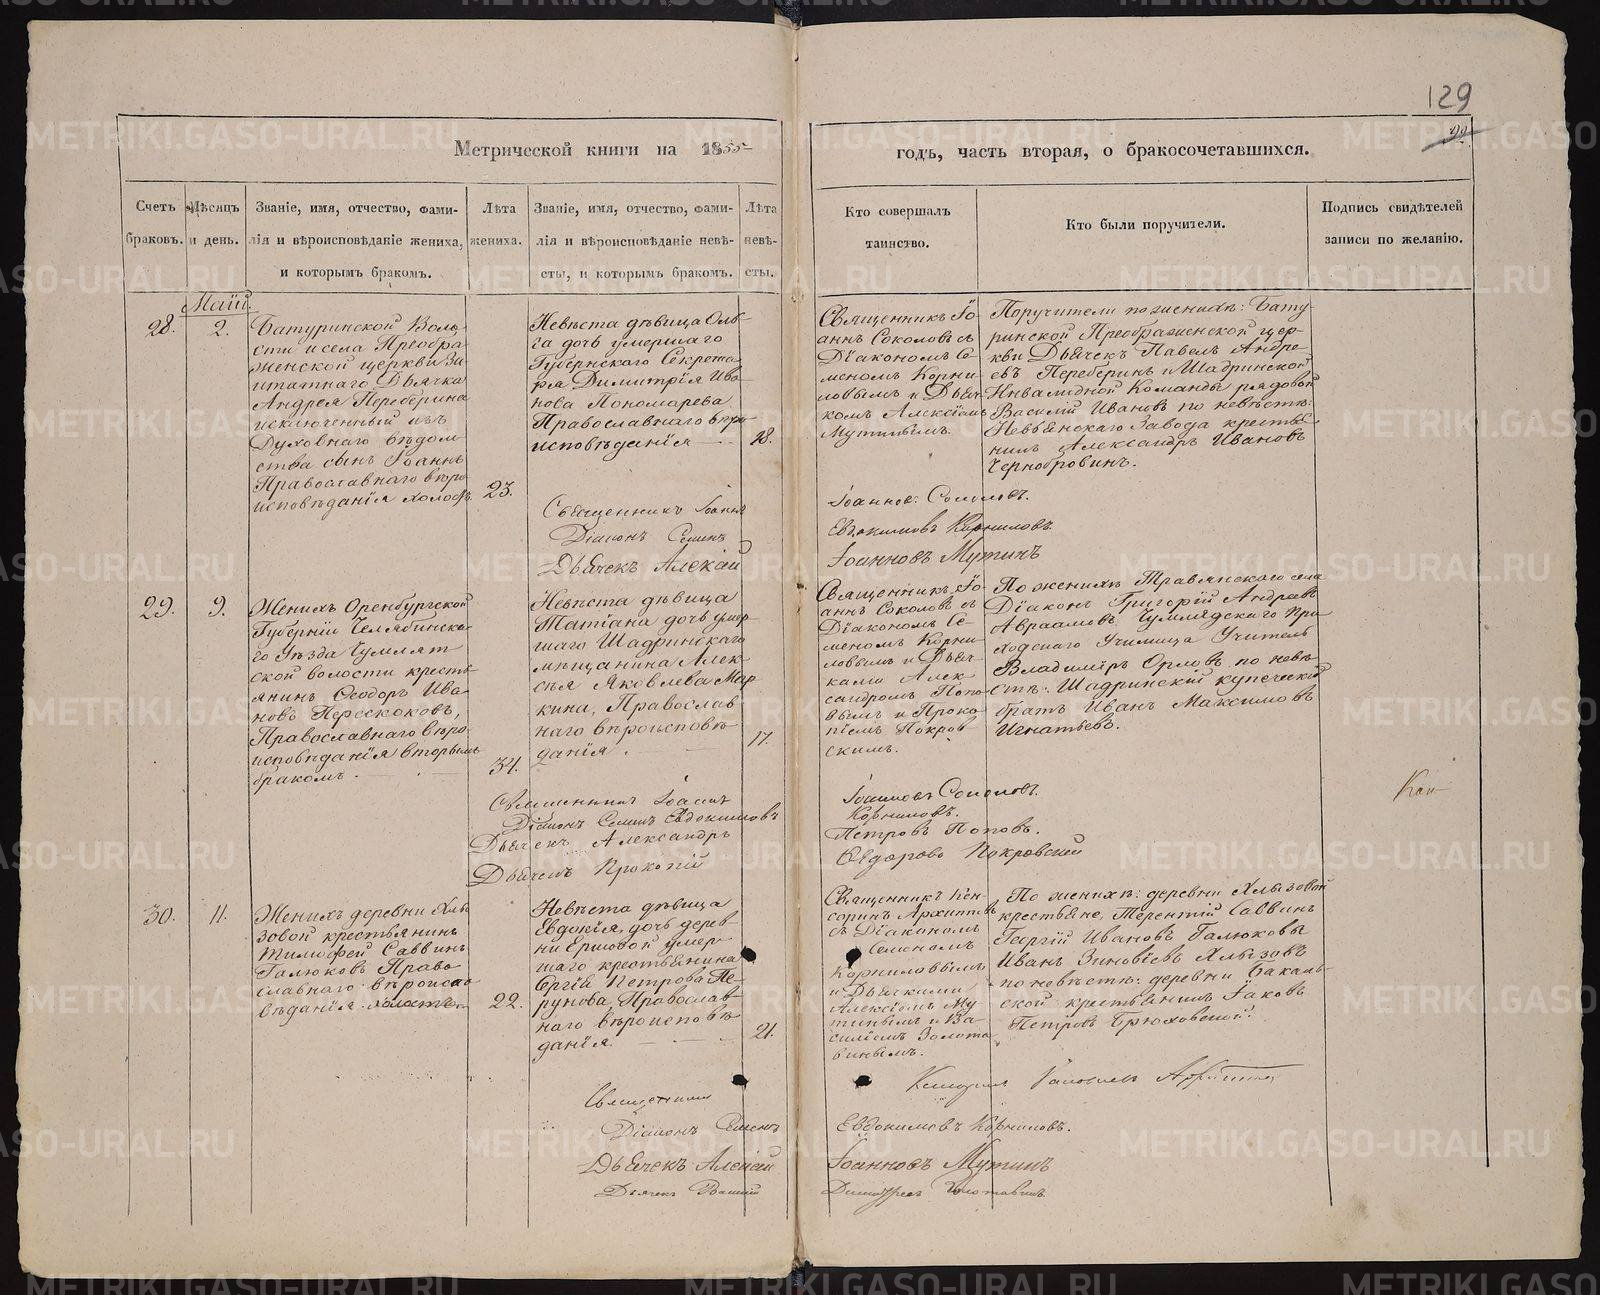 129
Метрической книги на 1855
годъ, часть вторая, о бракосочетавшихся.
Счетъ браковъ.
Мѣсяцъ и день.
Званіе, имя, отчество, фами-
лія и вѣроисповѣданіе жениха,
и которымъ бракомъ.
Лѣта
жениха.
Званіе, имя, отчество, фами-
лія и вѣроисповѣданіе невѣ-
сты, и которымъ бракомъ.
Лѣта
невѣ-
сты.
Кто совершалъ
таинство.
Кто были поручители.
Подпись свидѣтелей
записи по желанію.
Маій.
28.
2.
Батуринской Воло
сти и села Преобра
женской церкви За
штатнаго Дьячка
Андрея Переберина
исключенный изъ
Духовнаго вѣдом
ства сынъ Іоаннъ
Православнаго вѣро
исповѣданія холостъ.
23.
Невѣста дѣвица Оль-
га дочь умершаго
Губернскаго Секрета
ря Димитрія Ива
нова Пономарева
Православнаго вѣро
исповѣданія
18.
Священникъ Іо-
аннъ Соколовъ съ
Діакономъ Се-
меномъ Корни
ловымъ и Дьяч-
комъ Алексіемъ
Мутинымъ.
Поручители по женихѣ: Бату
ринской Преображенской цер-
кви Дьячекъ Павелъ Андре
евъ Переберинъ и Шадринской
Инвалидной Команды рядовой
Василій Ивановъ по невѣстѣ:
Невьянскаго Завода крестья
нинъ Александръ Ивановъ
Чернобровинъ.
Священникъ Іоаннъ
Іоанновъ Соколовъ.
Діаконъ Семенъ
Евдокимовъ Корниловъ
Дьячекъ Алексій
Іоанновъ Мутинъ
29.
9.
Женихъ Оренбургской
Губерніи Челябинска
го Уѣзда Чумлят
ской волости кресть
янинъ Ѳеодоръ Ива
новъ Перескоковъ,
Православнаго вѣро
исповѣданія вторымъ
бракомъ.
34.
Невѣста дѣвица
Татіана дочь умер-
шаго Шадринскаго
мѣщанина Алек-
сѣя Яковлева Мар
кина, Православ-
наго вѣроисповѣ
данія.
17.
Священникъ Іо-
аннъ Соколовъ съ
Діакономъ Се-
меномъ Корни-
ловымъ и Дьяч-
ками Алек-
сандромъ Попо-
вымъ и Проко-
піемъ Покров
скимъ.
По женихѣ Травянскаго села
Діаконъ Григорій Андреевъ
Авраамовъ, Чумлядскаго При
ходскаго Училища Учитель
Владиміръ Орловъ по невѣ
стѣ: Шадринскій купеческій
братъ Иванъ Максимовъ
Игнатьевъ.
Священникъ Іоаннъ
Іоанновъ Соколовъ.
Діаконъ Семенъ Евдокимовъ
Корниловъ.
Дьячекъ Александръ
Петровъ Поповъ.
Дьячекъ Прокопій
Ѳедоровъ Покровскій
30.
11.
Женихъ деревни Хлы
зовой крестьянинъ
Тимофей Саввинъ
Галюковъ Право
славнаго вѣроиспо
вѣданія холостъ.
22.
Невѣста дѣвица
Евдокія, дочь дерев-
ни Ершовой умер-
шаго крестьянина
Сергія Петрова Пе-
рунова Православ-
наго вѣроисповѣ
данія.
21.
Священникъ Кен-
соринъ Архиповъ
съ Діакономъ
Семеномъ
Корниловымъ
и Дьячками
Алексіемъ Му
тинымъ и Ва-
силіемъ Золота
винымъ.
По женихѣ: деревни Хлызовой
крестьяне, Терентій Саввинъ
Георгій Ивановъ Галюковы
Иванъ Зиновіевъ Хлызовъ
по невѣстѣ: деревни Бакаль-
ской крестьянинъ Іаковъ
Петровъ Брюховской.
Священникъ
Діаконъ Семенъ
Евдокимовъ Корниловъ.
Дьячекъ Алексій
Іоанновъ Мутинъ
Дьячекъ Василій
METRIKI.GASO-URAL.RU